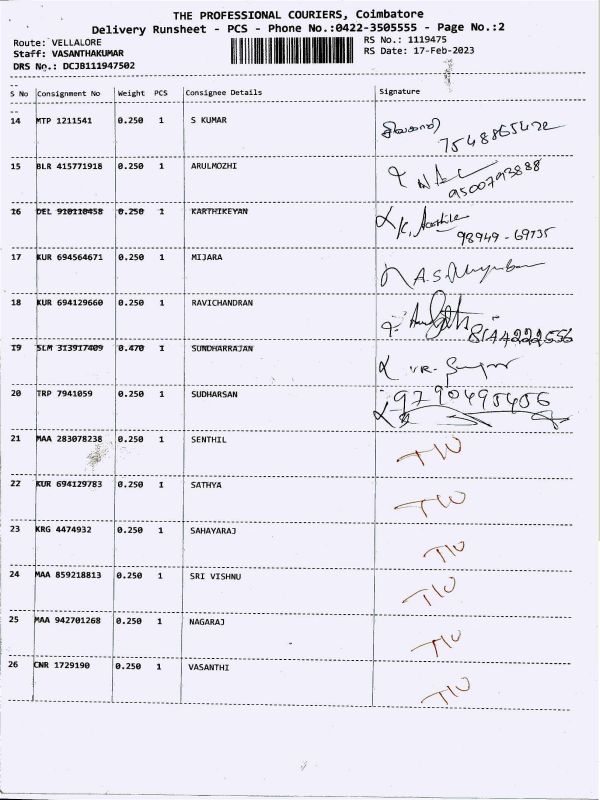 THE PROFESSIONAL COURIERS, Coimbatore
Delivery Runsheet - PCS - Phone No.:0422-3505555 - Page No.:2
Route: VELLALORE RS No.: 1119475
Staff: VASANTHAKUMAR RS Date: 17-Feb-2023
DRS No.: DCJB111947502
S No Consignment No Weight PCS Consignee Details Signature
14 MTP 1211541 0.250 1 S KUMAR
7548865422
15 BLR 415771918 0.250 1 ARULMOZHI
9500793888
16 DEL 910110458 0.250 1 KARTHIKEYAN
98949-69735
17 KUR 694564671 0.250 1 MIJARA
18 KUR 694129660 0.250 1 RAVICHANDRAN
8144222556
19 SLM 313917409 0.470 1 SUNDHARRAJAN
20 TRP 7941059 0.250 1 SUDHARSAN 9790495456
21 MAA 283078238 0.250 1 SENTHIL TIW
22 KUR 694129783 0.250 1 SATHYA TIW
23 KRG 4474932 0.250 1 SAHAYARAJ TIW
24 MAA 859218813 0.250 1 SRI VISHNU TIW
25 MAA 942701268 0.250 1 NAGARAJ TIW
26 CNR 1729190 0.250 1 VASANTHI TIW